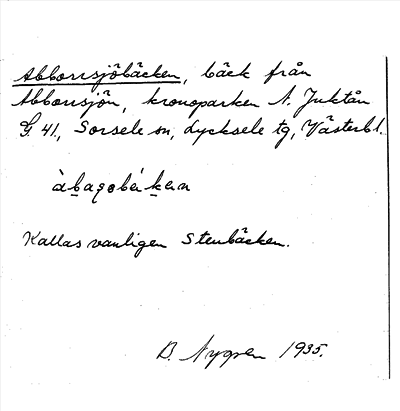 Abborrsjöbäcken, bäck från
Abborrsjön, kronoparken N. Juktån
G. 41., Sorsele sn, Lycksele tg, Västerb l.
Kallas vanligen Stenbäcken.
B. Nygren 1935.